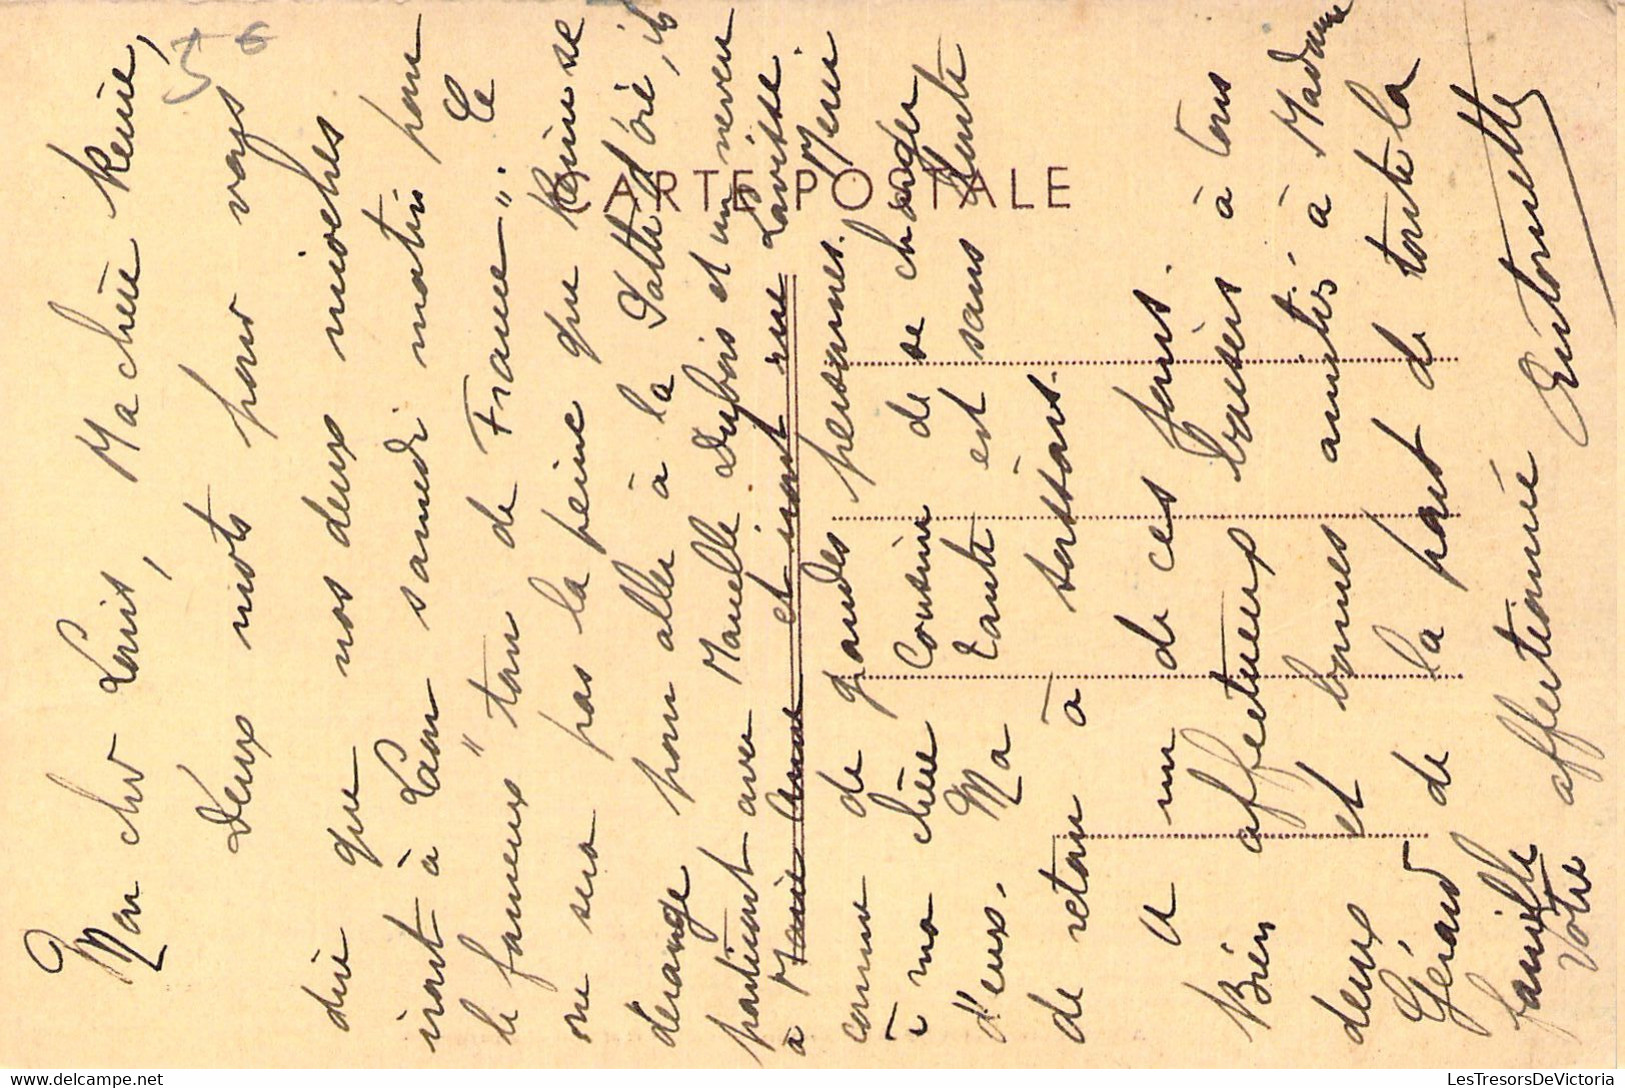 Mon cher Louis, Ma chère Renée,
Deux mots pour vous
dire que nos deux mioches
iront à Laon samedi matin pour
le fameux "tour de France". Ce
ne sera pas la peine que Renée se
dérange pour aller à la , ils
partiront avec Marcelle Dubois et un neveu
à Marie Anne et iront rue Lavisse
comme de grandes personnes. Merci
à ma chère Cousine de se charger
d'eux. Ma Tante est sans
de retour à Sissons.
A un de ces jours.
Bien affectueux baisers à tous
deux et bonnes amitiés à Madame
Gérard de la part de toute la
famille
Votre affectionnée Antoinette
56
CARTE POSTALE
LesTresorsDeVictoria